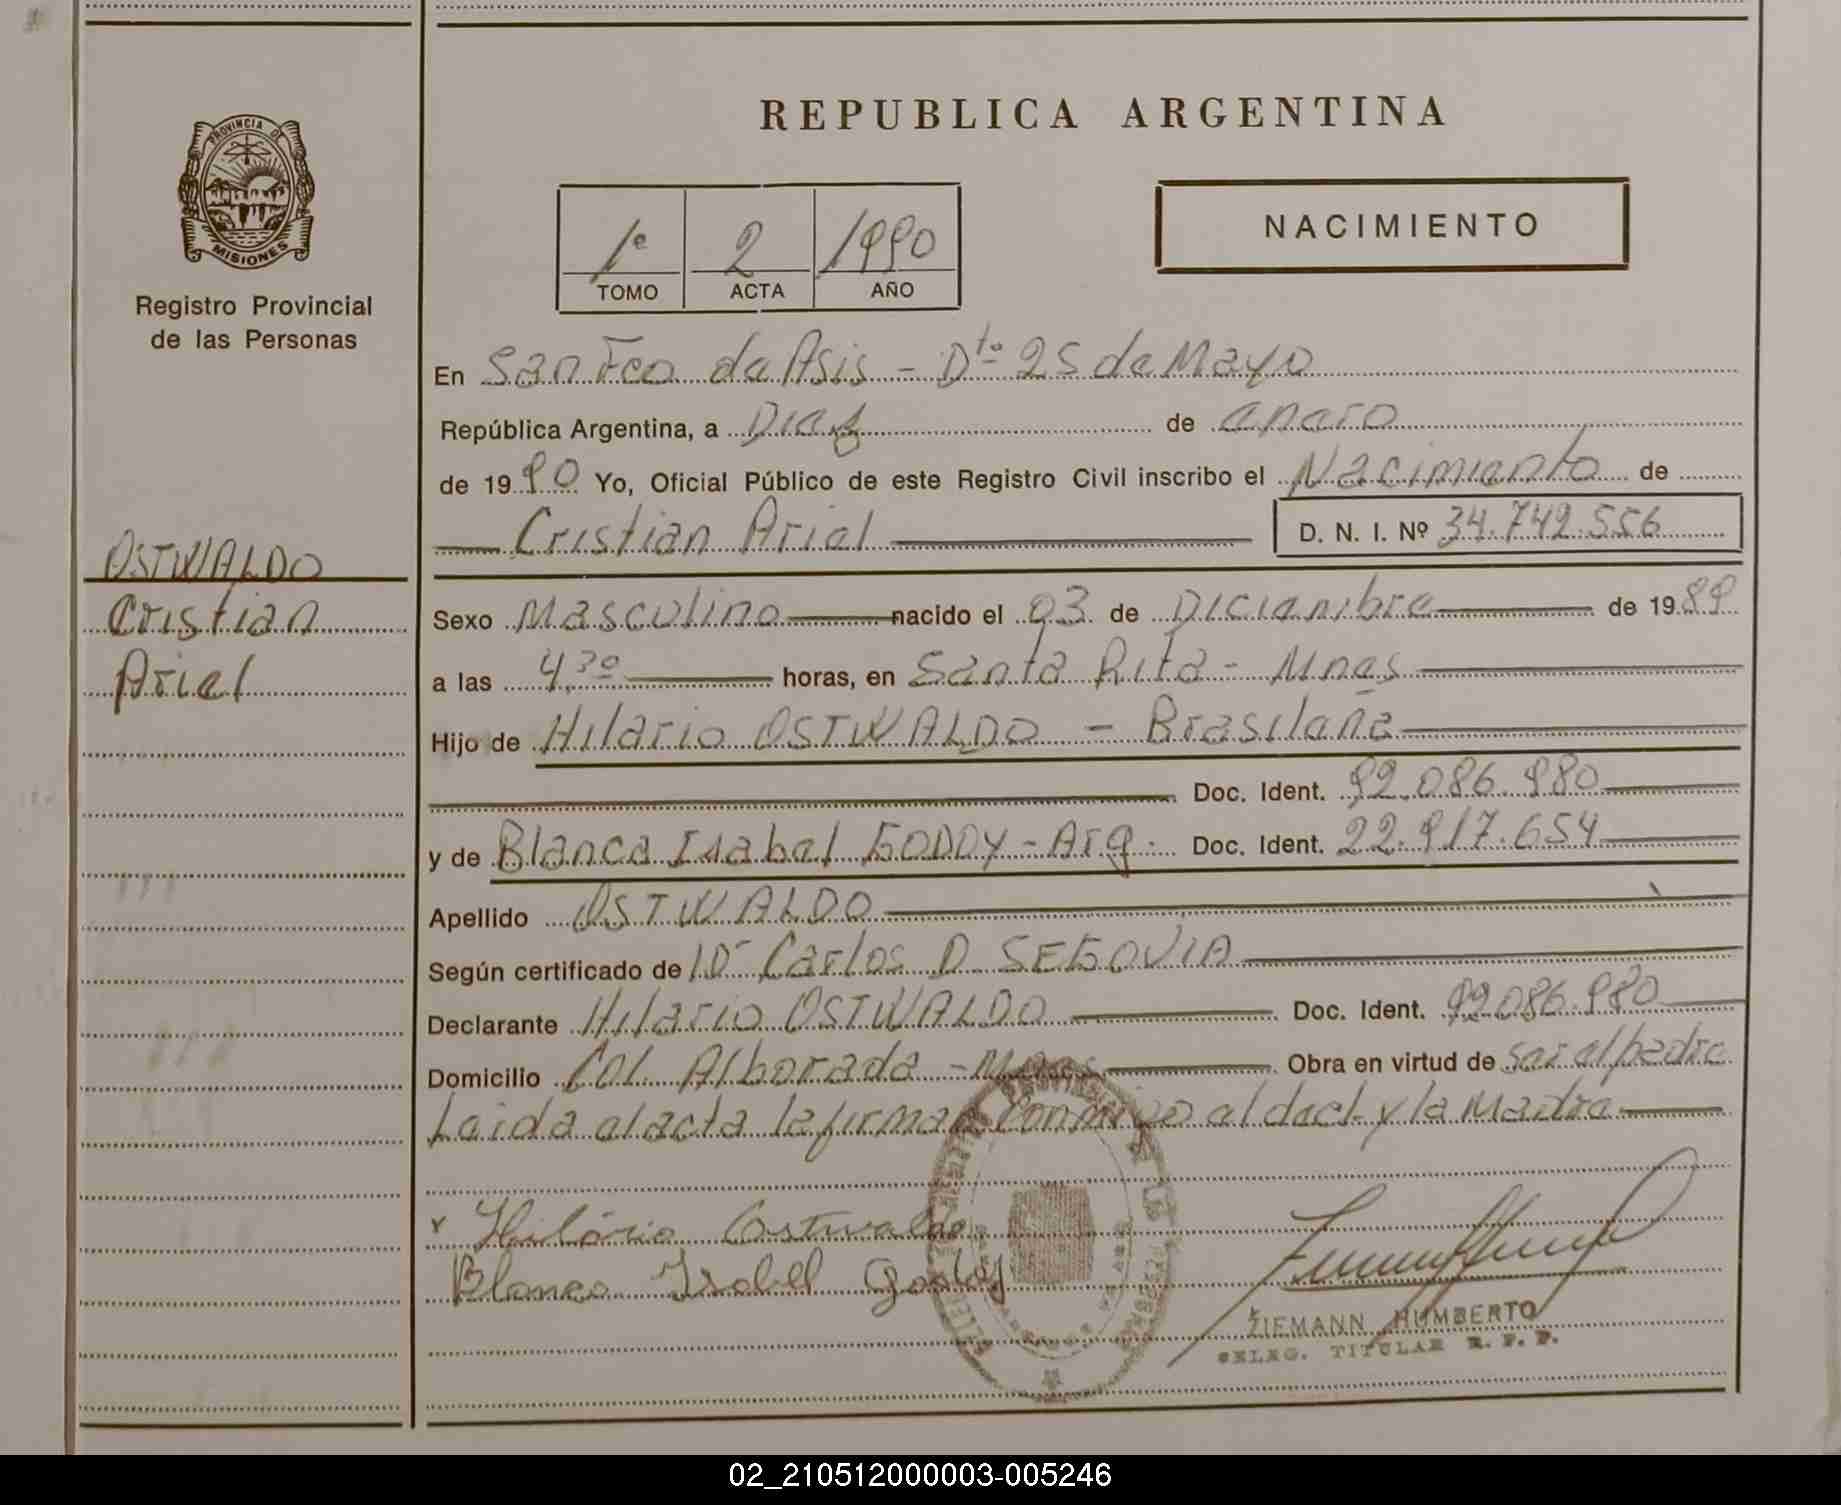 REPUBLICA ARGENTINA
PROVINCIA D
MISIONES
Registro Provincial
de las Personas
1º 2 1990
TOMO ACTA AÑO
NACIMIENTO
En San Fco de Asis - Dto 25 de Mayo
República Argentina, a Diez de enero
de 1990 Yo, Oficial Público de este Registro Civil inscribo el Nacimiento de
Cristian Ariel D. N. I. Nº 34.742.556
OSTWALDO
Cristian
Ariel
Sexo Masculino nacido el 03 de Diciembre de 1989
a las 4,30 horas, en Santa Rita - Mnes
Hijo de Hilario OSTWALDO - Brasileña
Doc. Ident. 92.086.980
y de Blanca Isabel GODOY - Arg. Doc. Ident. 22.917.654
Apellido OSTWALDO
Según certificado de Dr Carlos D SEGOVIA
Declarante Hilario OSTWALDO Doc. Ident. 92.086.980
Domicilio Col. Alborada - Mnes Obra en virtud de ser el padre
Leida el acta la firman conmigo el decl. y la Madre
x Hilário Ostwaldo
Blanca Isabel Godoy
ZIEMANN HUMBERTO
DELEG. TITULAR R. P. P.
02_210512000003-005246